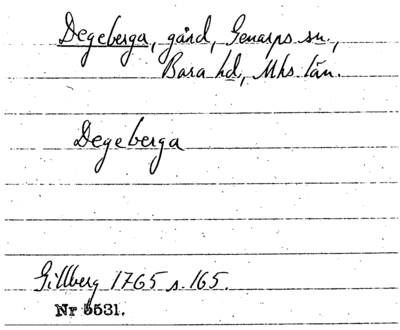 Degeberga, gård, Genarps sn.,
Bara hd, Mhs län.
Degeberga
Gillberg 1765 s. 165.
Nr 5531.